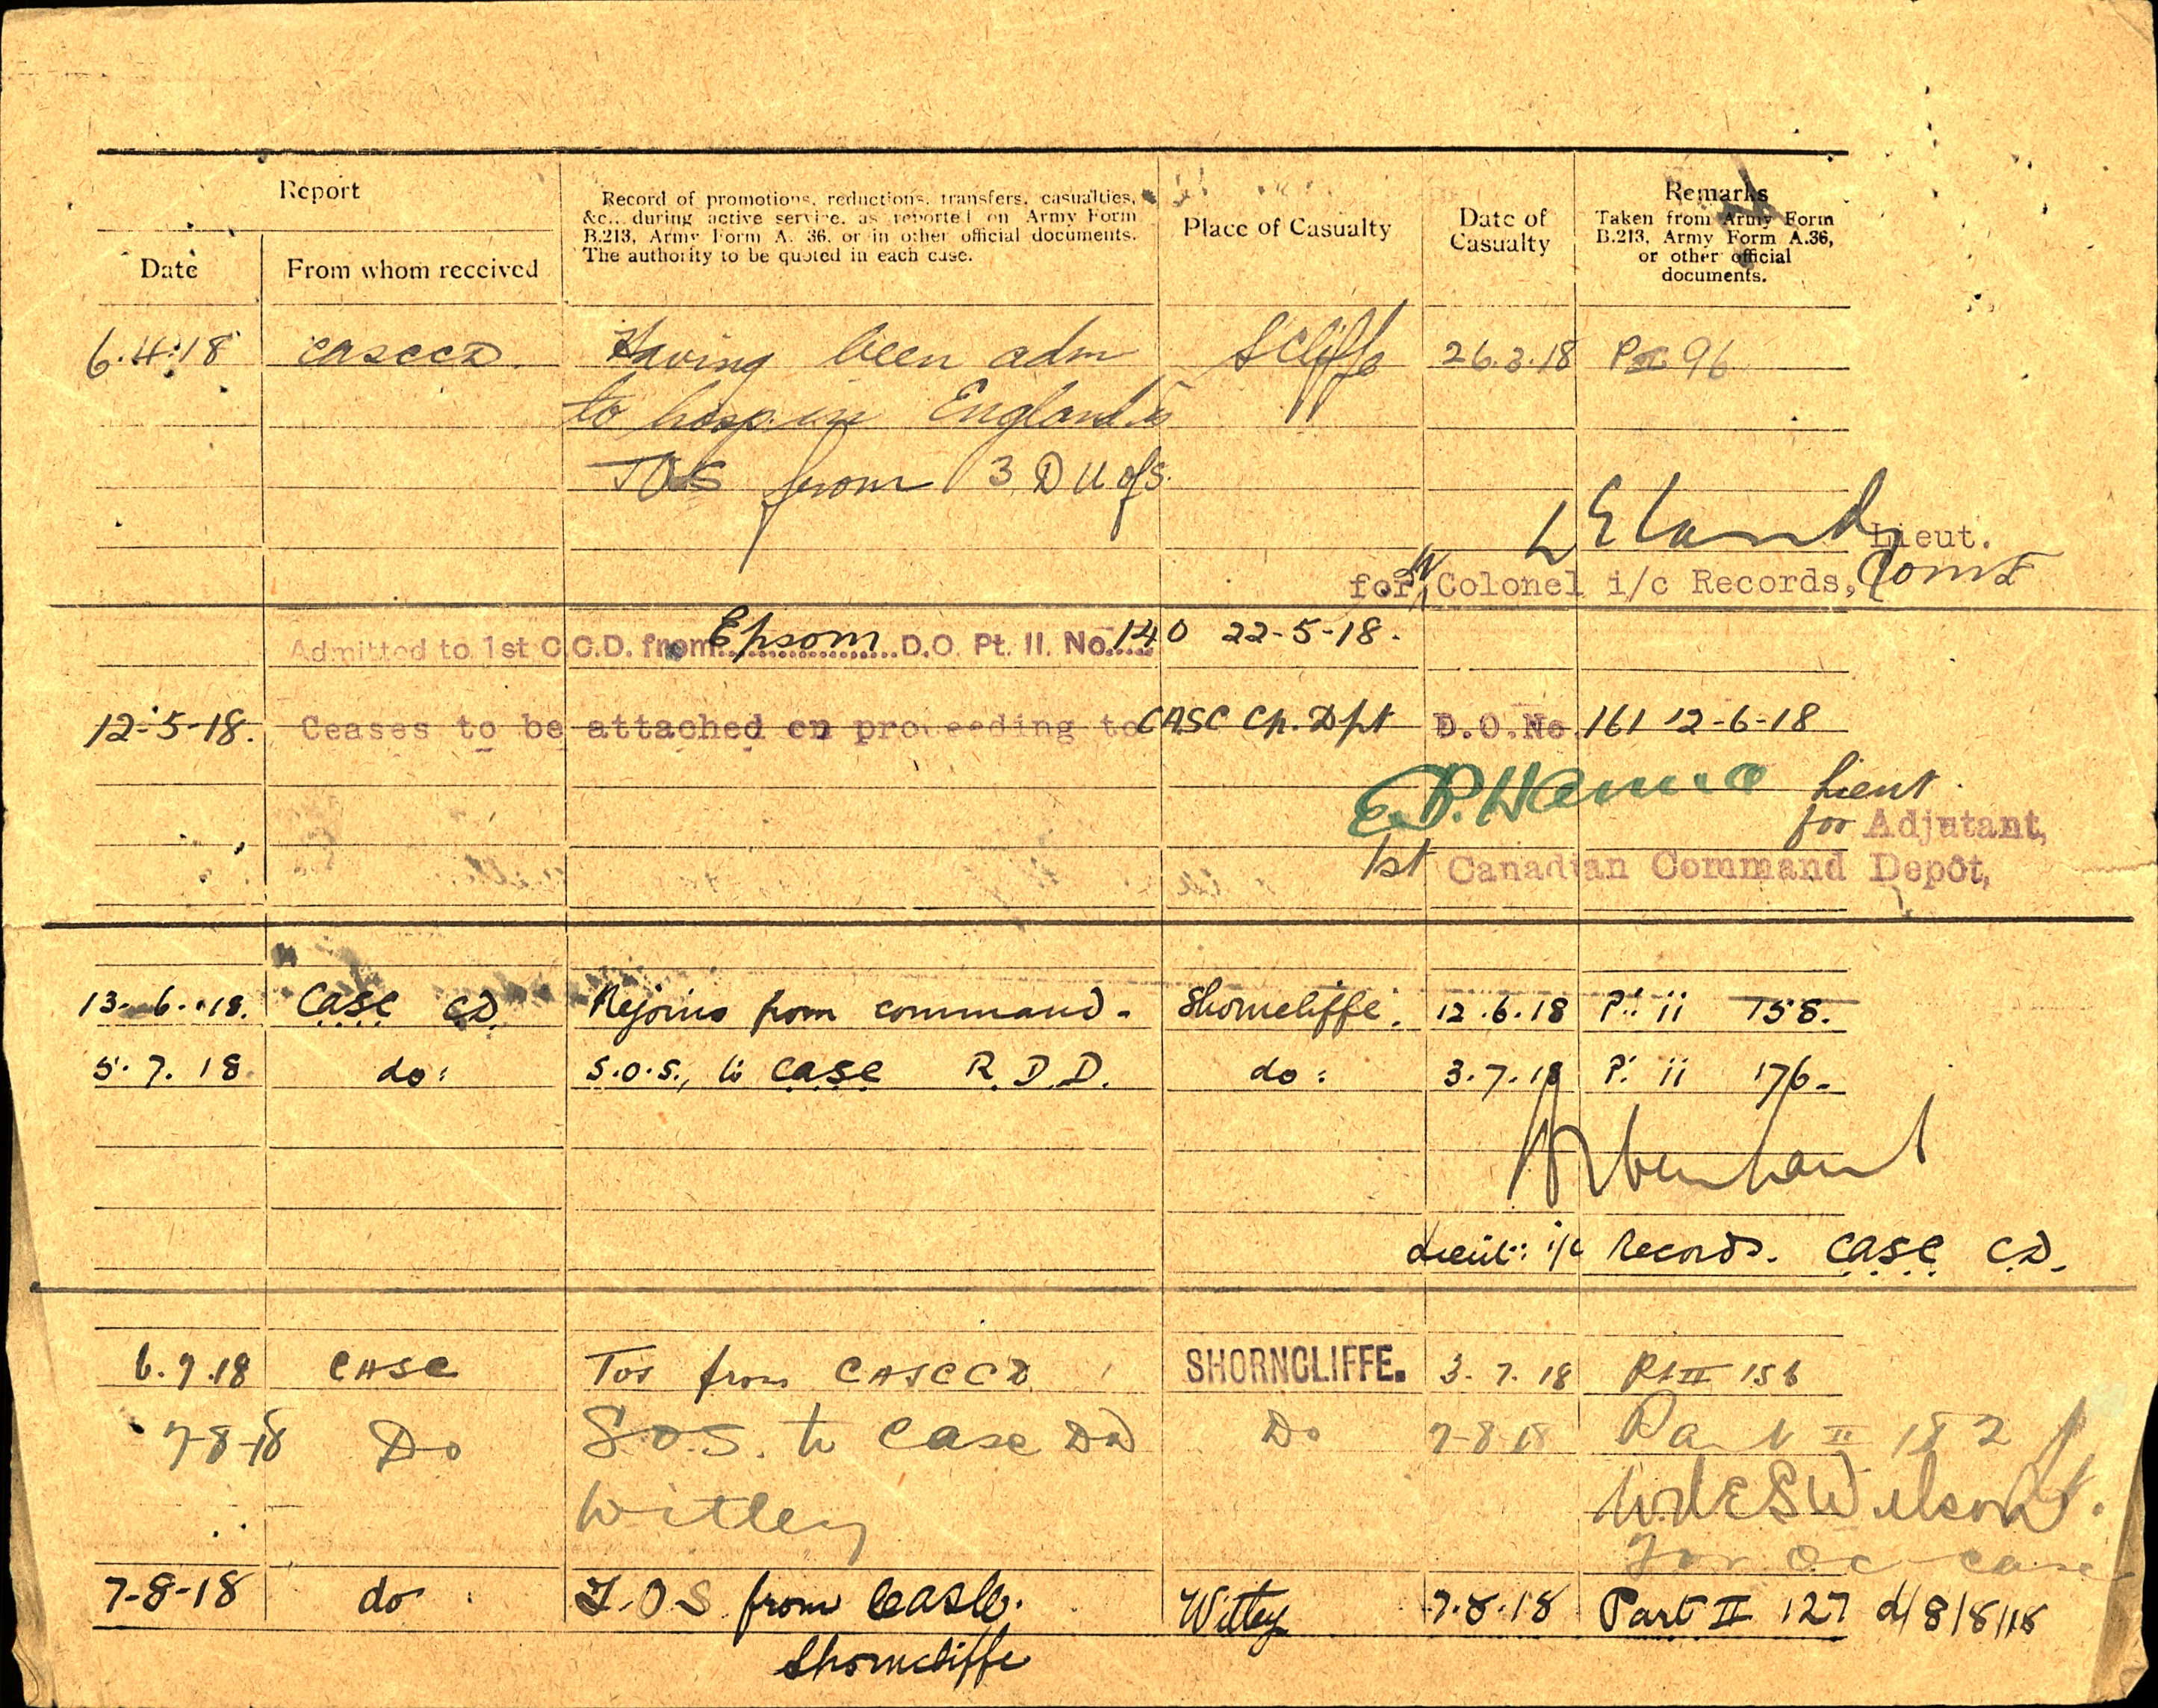 Report
Record of promotions, reductions, transfers, casualties, &c., during active service, as reported on Army Form B.213, Army Form A. 36, or in other official documents. The authority to be quoted in each case.
Place of Casualty
Date of Casualty
Remarks
Taken from Army Form B.213, Army Form A.36, or other official documents.
Date
From whom received
6.4.18 CASCCD. Having been adm Scliffe 26.3.18 Pt II 96
to hosp in England is
TOS from 3 D U of S.
Lieut.
for Colonel i/c Records,
Admitted to 1st C.C.D. from Epsom D.O. Pt. II. No. 140 22-5-18.
12-5-18. Ceases to be attached on proceeding to CASC Cp. Dpt D.O.No. 161 12-6-18
Lieut.
for Adjutant,
1st Canadian Command Depôt,
13-6-18. C.A.S.C. C.D. Rejoins from command. Shorncliffe. 12.6.18 Pt. ii 158.
5.7.18 do: S.O.S., to C.A.S.C. R.D.D. do: 3.7.18 Pt. ii 176.
Lieut: i/c Records. C.A.S.C. C.D.
6.7.18 CASC TOS from CASCCD SHORNCLIFFE. 3.7.18 Pt II 156
7-8-18 Do S.O.S. to CASC DD Do 7-8-18 Part II 182
Witley Wilson Lt.
For OC CASC
7-8-18 do T.O.S. from CASC. Witley 7.8.18 Part II 127 d/8/8/18
Shorncliffe